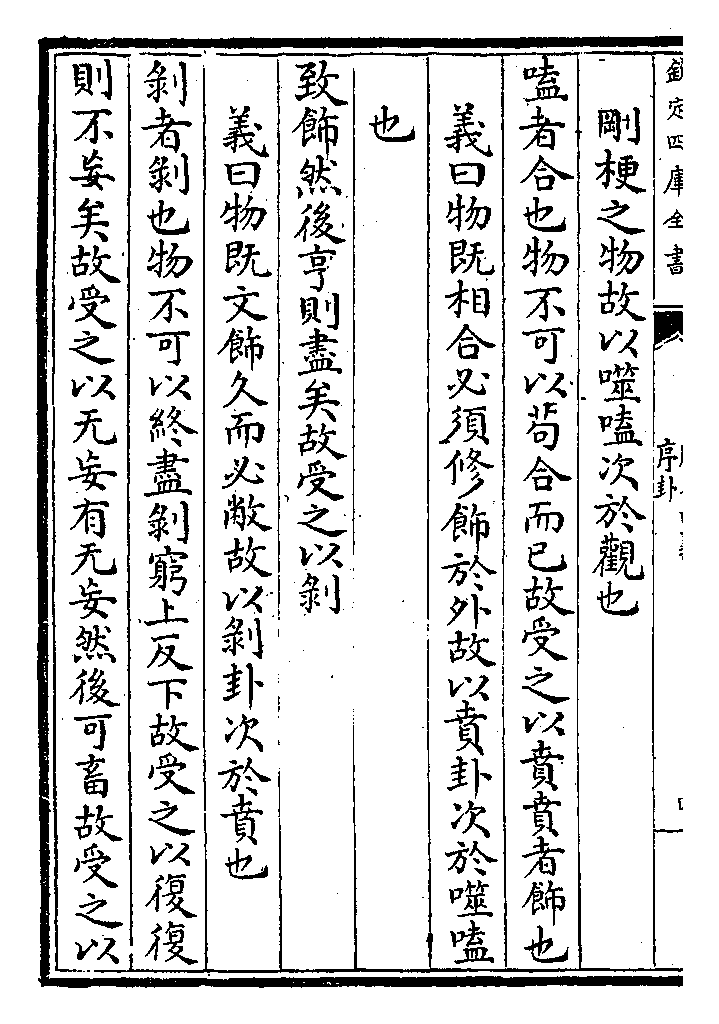 欽定四庫全書
序卦
剛梗之物故以噬嗑次於觀也
嗑者合也物不可以茍合而已故受之以賁賁者飾也
義曰物既相合必須修飾於外故以賁卦次於噬嗑
也
致飾然後亨則盡矣故受之以剝
義曰物既文飾久而必敝故以剝卦次於賁也
剝者剝也物不可以終盡剝窮上反下故受之以復復
則不妄矣故受之以无妄有无妄然後可畜故受之以